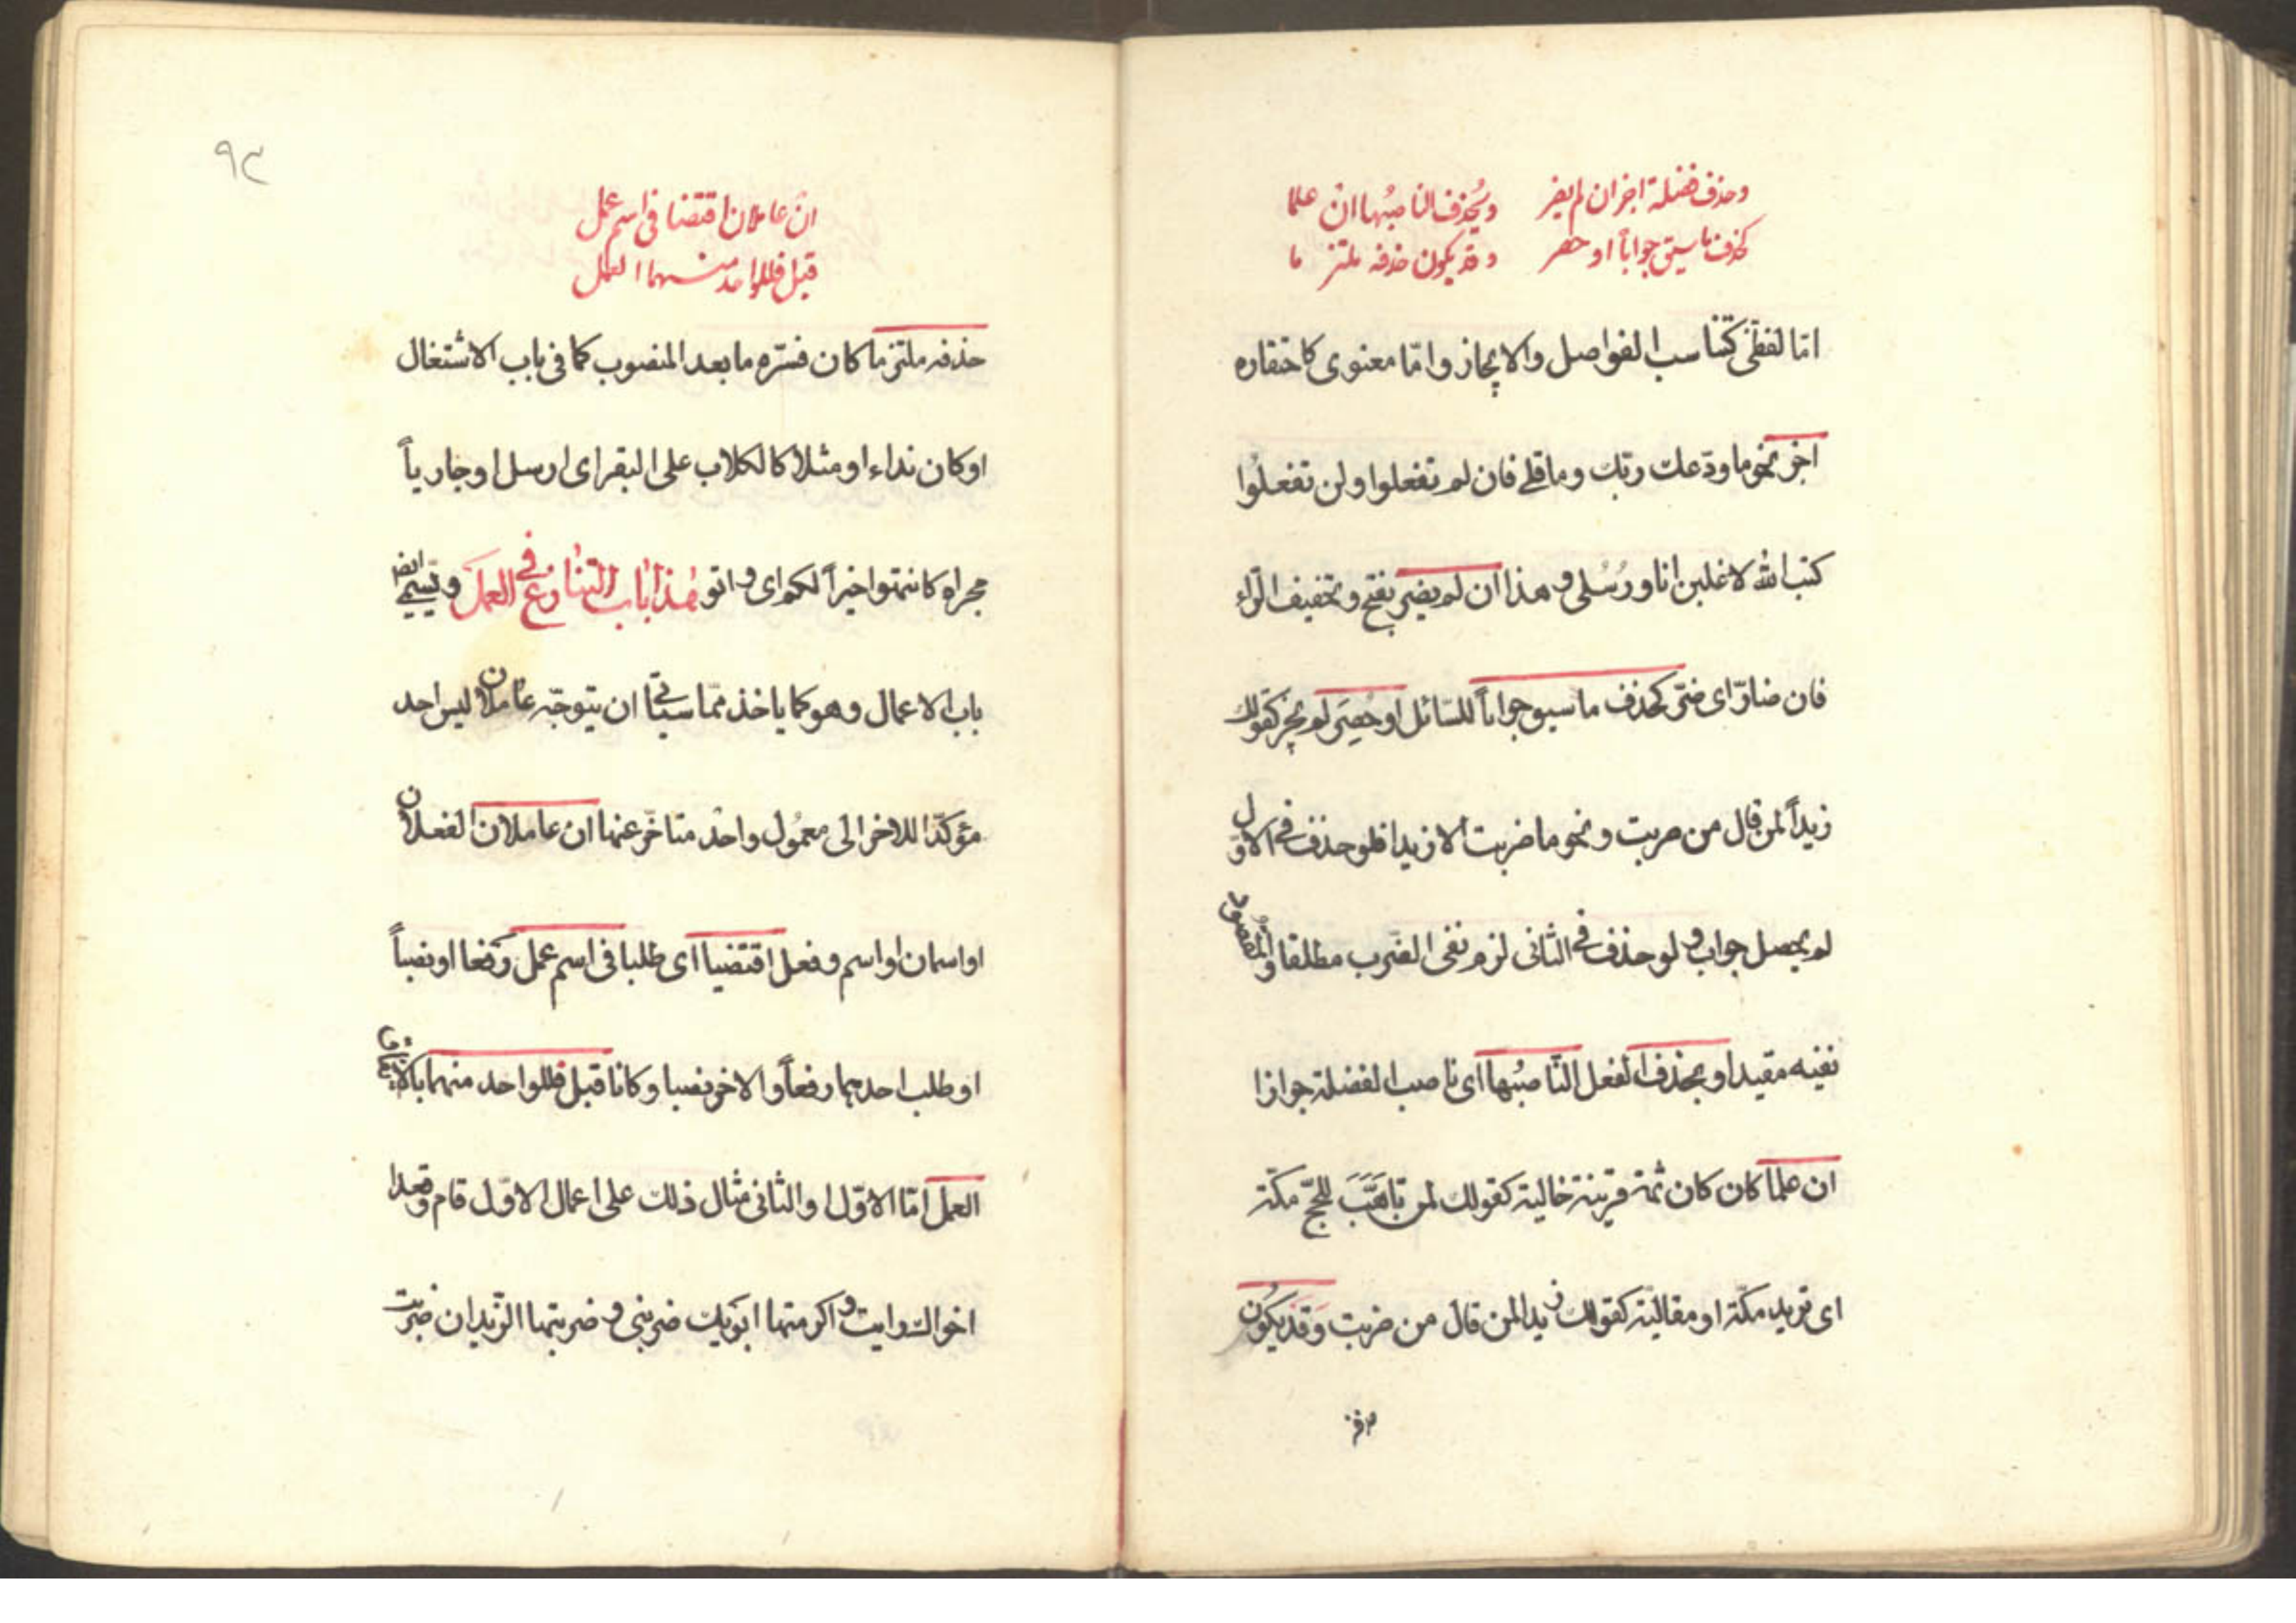 وحذف فضلة اجز ان لم يضر ويُحذف الناصبُها ان علما
كحذف ما سيق جواباً او حصر وقد يكون حذفه ملتزما
امّا لفظىّ كتناسب الفواصل والايجاز وامّا معنوى كاحتقاره
اجز نحو ما ودّعك ربّك وما قلى فان لم تفعلوا ولن تفعلُوا
كتب الله لاغلبن انا ورُسُلى وهذا ان لم يضر بفتح وتخفيف الرّاء
فان ضارّ اى ضرّ كحذف ما سيق جواباً للسّائل او حُصِرَ لم يجز كقولك
زيداً لمن قال من ضربت ونحو ما ضربت الا زيدا فلو حذف فى الاوّل
لم يحصل جواب ولو حذف فى الثانى لزم نفى الضّرب مطلقا والمقصود
نفيه مقيدا ويحذف الفعل النّاصبُها اى ناصب الفضلة جوازا
ان علما كان كان ثمة قرينة حالية كقولك لمن تاهَبَّ للحجّ مكة
اى تريد مكّة او مقاليّة كقولك زيدا لمن قال من ضربت وَقَد يكُون
٩٢
ان عاملان اقتضا فى اسم عمل
قبل فللواحد منهما العمل
حذفه ملتزما كان فسّره ما بعد المنصوب كما فى باب الاشتغال
او كان نداء او مثلا كالكلاب على البقر اى ارسل او جارياً
مجراه كانتهوا خيراً لكم اى واتو هٰذا باب التنازع فى العمل ويسمى ايضا
باب الاعمال وهو كما ياخذ ممّا سياتى ان يتوجّه عاملان ليس احد
مؤكّدا للاخر الى معمُول واحد متاخّر عنها ان عاملان الفعلان
او اسمان او اسم وفعل اقتضيا اى طلبا فى اسم عمل رفعا او نصباً
او طلب احدهما رفعاً والاخر نصبا وكانا قبل فللواحد منهما
العمل امّا الاوّل او الثانى مثال ذلك على اعمال الاوّل قام وقعدا
اخواك رايت واكرمتهما ابويك ضربنى وضربتهما الزّيدان ضربت